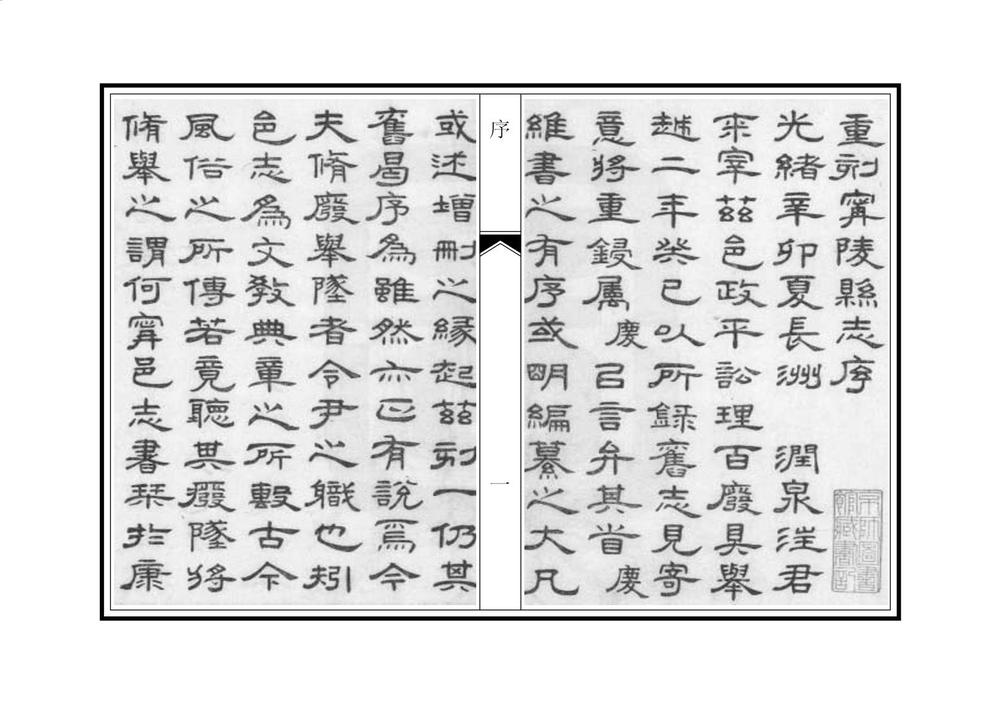 重刻寧陵縣志序
光緒辛卯夏長洲 潤泉汪君
來宰茲邑政平訟理百廢具舉
越二年癸巳以所錄舊志見寄
意將重鋟屬 慶 弁言弁其首 慶
維書之有序或明編纂之大凡
或述增刪之緣起茲刻一仍其
舊曷序為雖然亦正有說焉今
夫脩廢舉墜者令尹之職也矧
邑志為文教典章之所繫古今
風俗之所傳若竟聽其廢墜將
脩舉之謂何寧邑志書栞於康
序
一